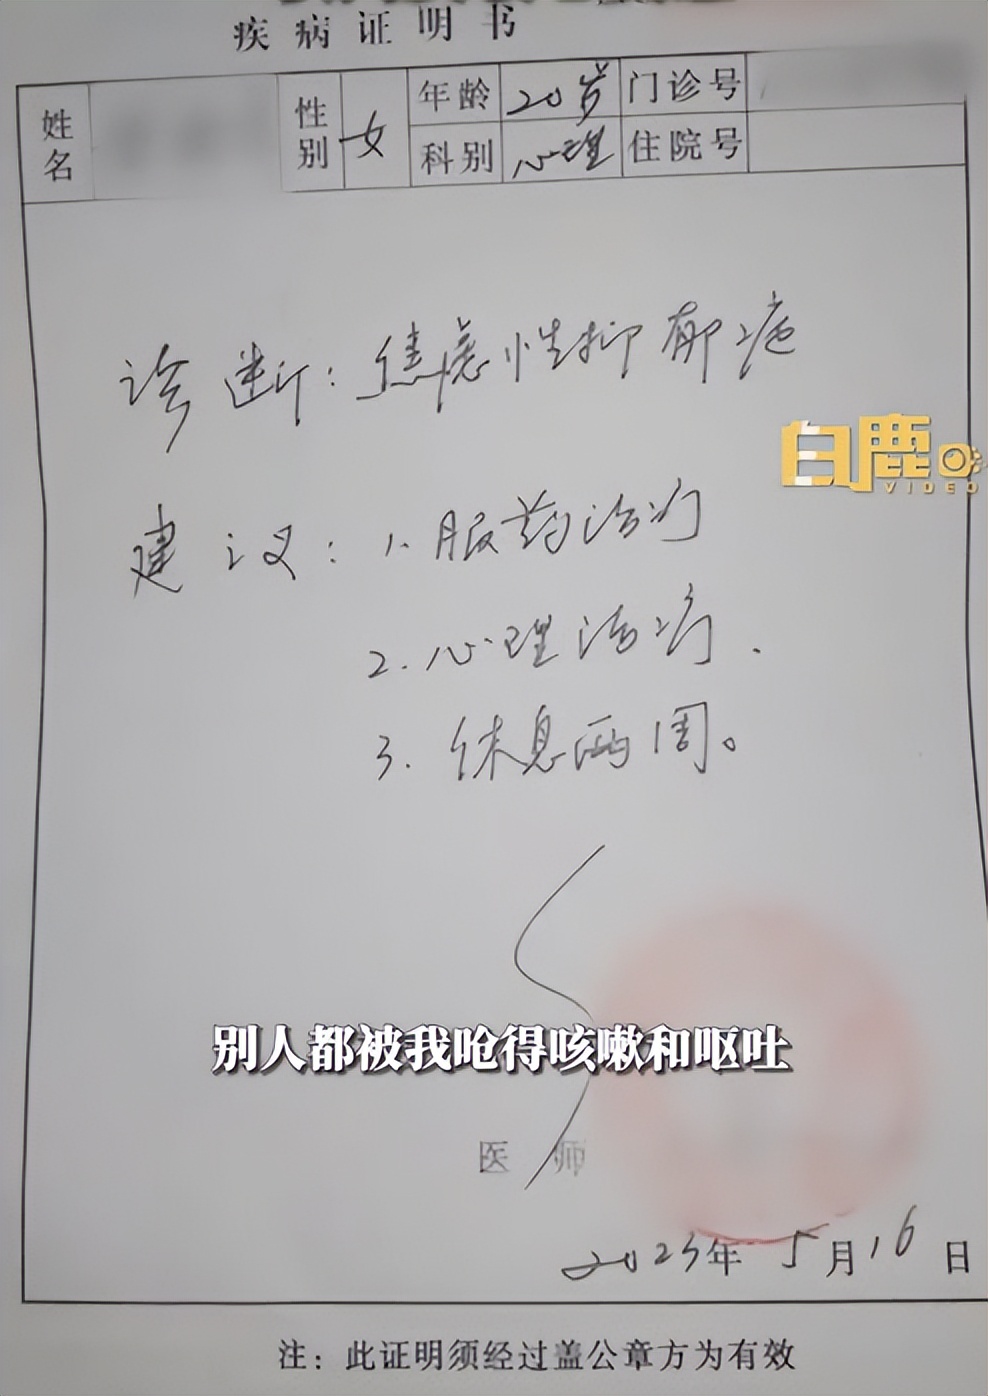 疾病证明书
姓名 性别 女 年龄 20岁 门诊号
科别 心理 住院号
诊断：焦虑性抑郁症
白鹿
VIDEO
建议：1.服药治疗
2.心理治疗.
3.休息两周。
别人都被我呛得咳嗽和呕吐
医师
2023年5月16日
注：此证明须经过盖公章方为有效